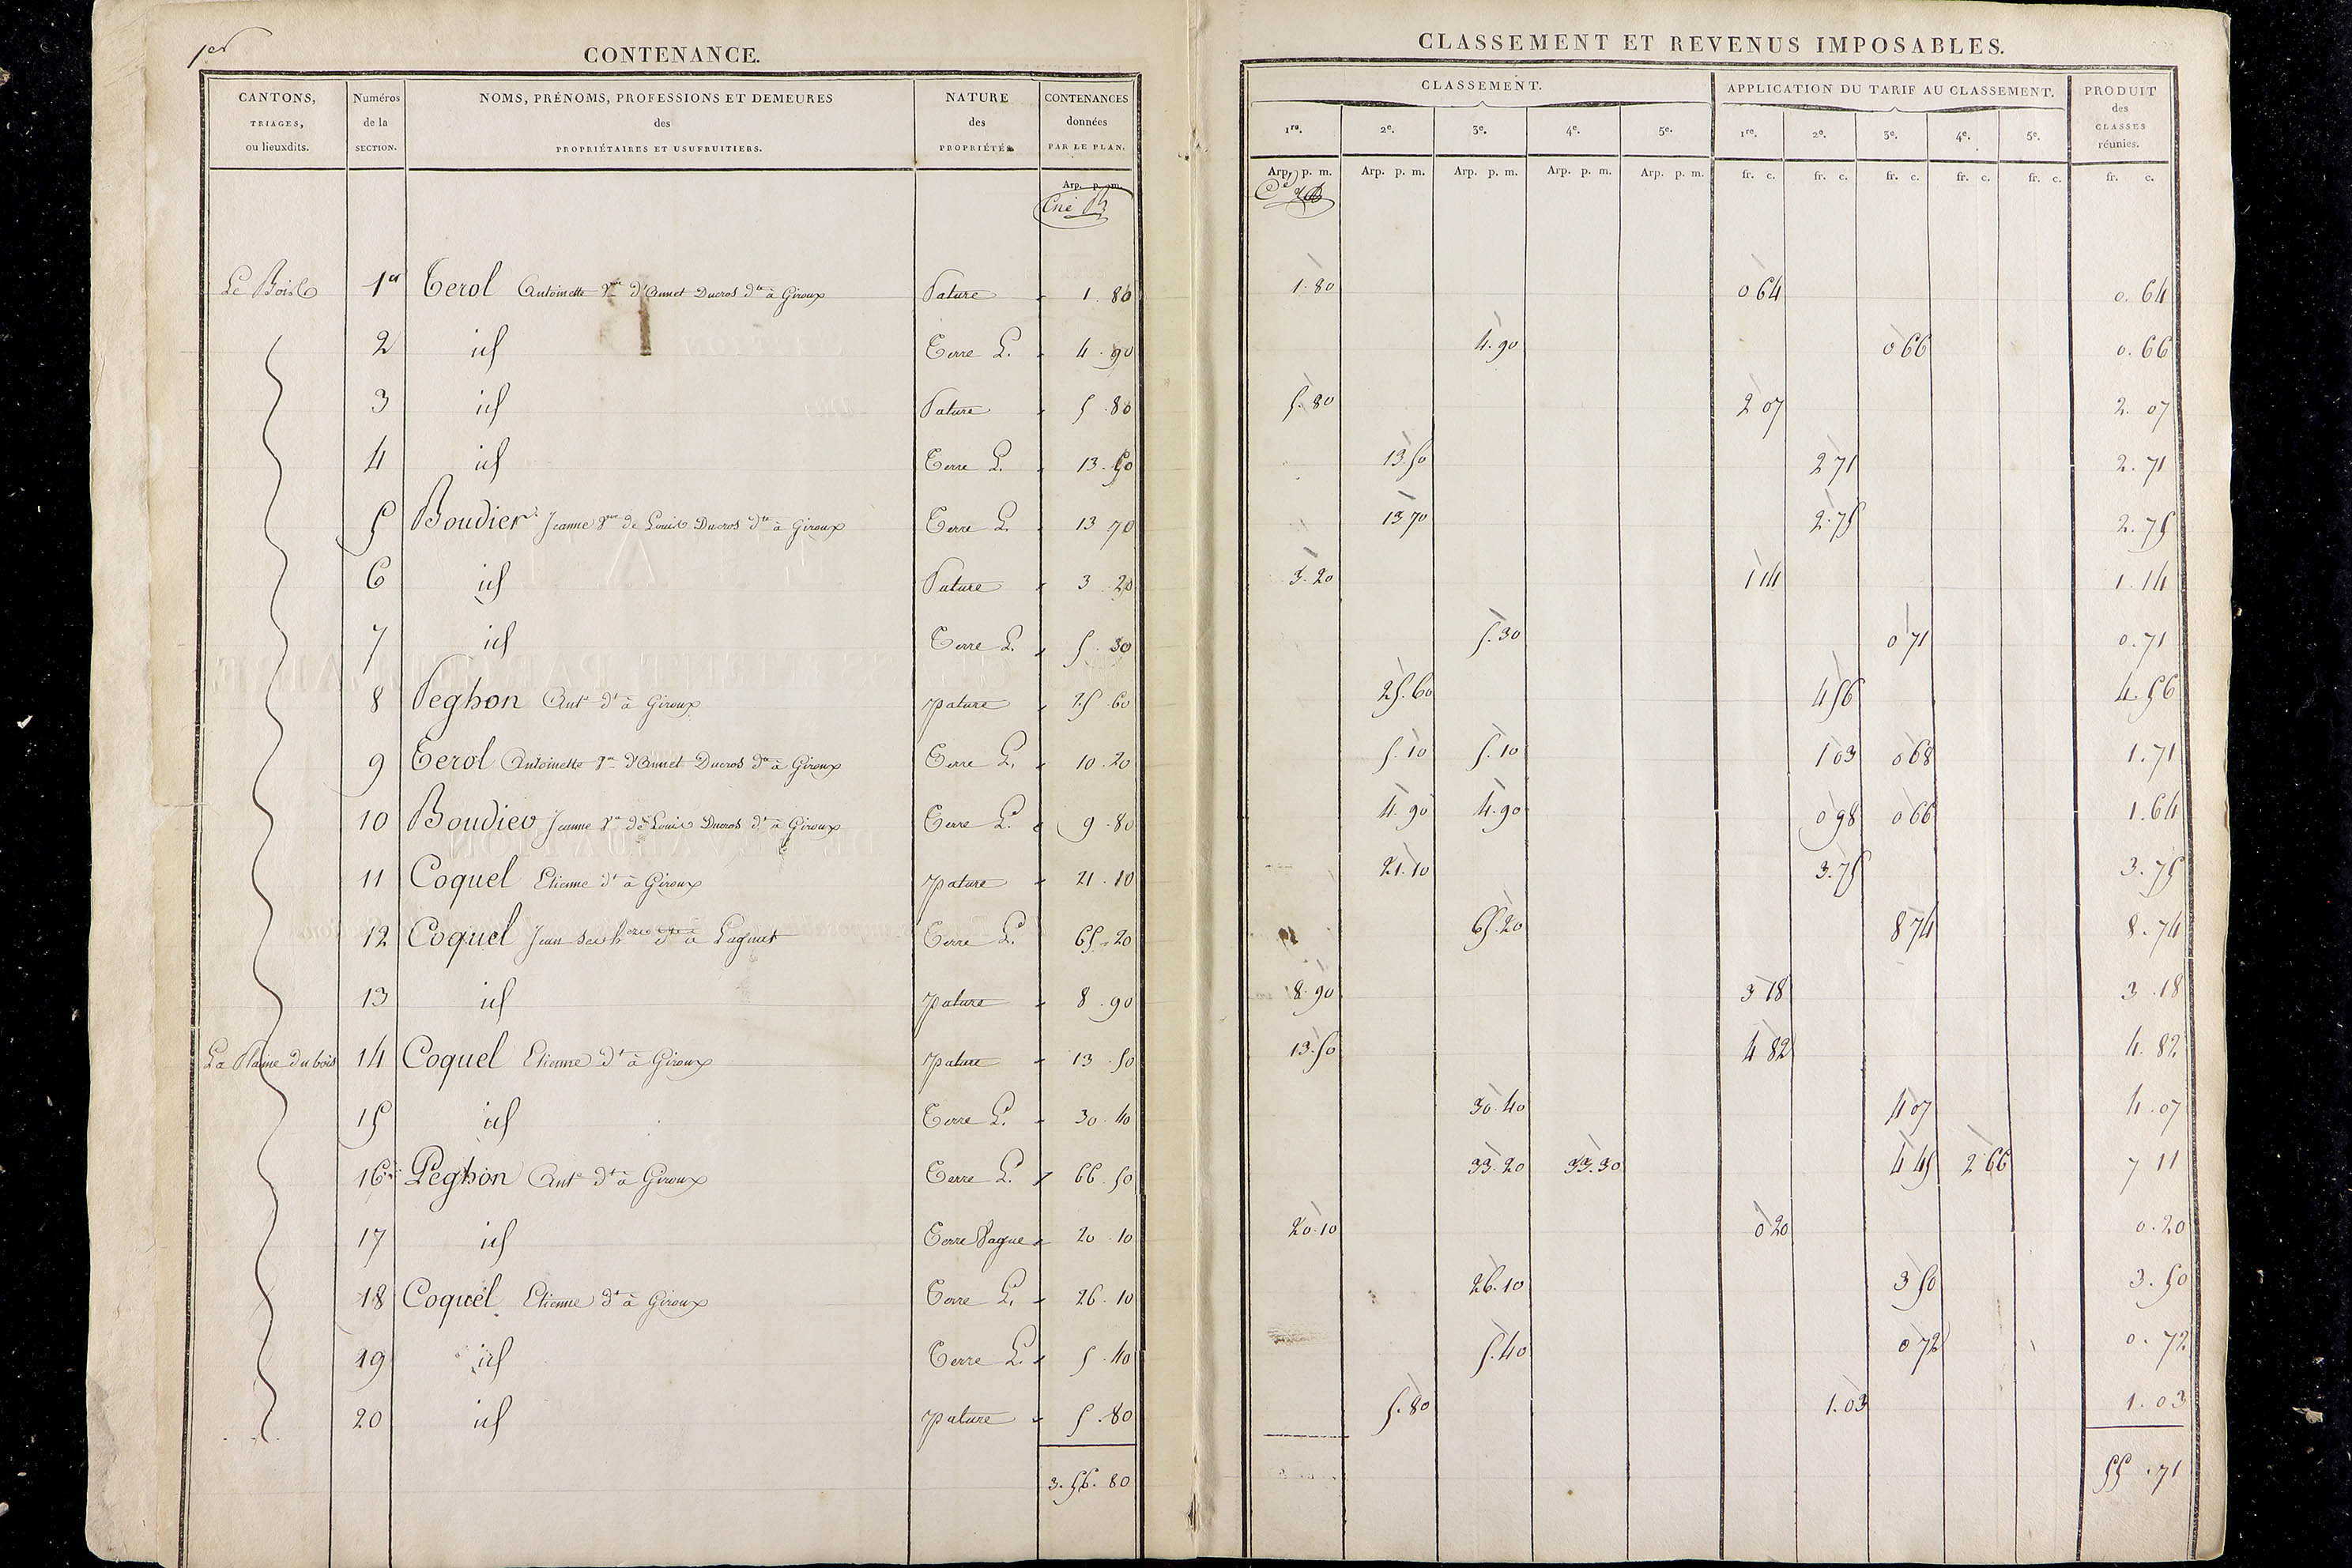 1er
CONTENANCE.
CANTONS, TRIAGES, ou lieuxdits.
Numéros de la SECTION.
NOMS, PRÉNOMS, PROFESSIONS ET DEMEURES des PROPRIÉTAIRES ET USUFRUITIERS.
NATURE des PROPRIÉTÉS
CONTENANCES données PAR LE PLAN.
Arp. p. m.
Le Bois 1er Terol Antoinette Vve d'Annet Ducros dte à Giroux Pature 1. 80
2 id Terre L. 4. 90
3 id Pature 5. 80
4 id Terre L. 13. 50
5 Boudier Jeanne Vve de Louis Ducros dte à Giroux Terre L. 13 70
6 id Pature 3. 20
7 id Terre L. 5. 30
8 Peghon Ant. dt à Giroux pature 25. 60
9 Terol Antoinette Ve d'Annet Ducros dte à Giroux Terre L. 10. 20
10 Boudier Jeanne Ve de Louis Ducros dt à Giroux Terre L. 9. 80
11 Coquel Etienne dt à Giroux pature 21. 10
12 Coquel Jean à Terre L. 65. 20
13 id pature 8. 90
La Plaine du bois 14 Coquel Etienne dt à Giroux pature 13. 50
15 id Terre L. 30. 40
16 Peghon Ant. dt à Giroux Terre L. 66. 50
17 id Terre Vague 20. 10
18 Coquel Etienne dt à Giroux Terre L. 26. 10
19 id Terre L. 5. 40
20 id pature 5. 80
3. 56. 80
CLASSEMENT ET REVENUS IMPOSABLES.
CLASSEMENT.
APPLICATION DU TARIF AU CLASSEMENT.
PRODUIT des CLASSES réunies.
1re. 2e. 3e. 4e. 5e. 1re. 2e. 3e. 4e. 5e.
Arp. p. m. Arp. p. m. Arp. p. m. Arp. p. m. Arp. p. m. fr. c. fr. c. fr. c. fr. c. fr. c. fr. c.
1. 80 0 64 0. 64
4. 90 0 66 0. 66
5. 80 2 07 2. 07
13. 50 2 71 2. 71
13 70 2. 75 2. 75
3. 20 1 14 1. 14
5. 30 0 71 0. 71
25. 60 4 56 4. 56
5. 10 5. 10 1 03 0 68 1. 71
4. 90 4. 90 0 98 0 66 1. 64
21. 10 3. 75 3. 75
65. 20 8 74 8. 74
8. 90 3 18 3. 18
13. 50 4 82 4. 82
30. 40 4 07 4. 07
33. 20 33. 30 4 45 2 66 7 11
20. 10 0 20 0. 20
26. 10 3 50 3. 50
5. 40 0 72 0. 72
5. 80 1. 03 1. 03
55. 71